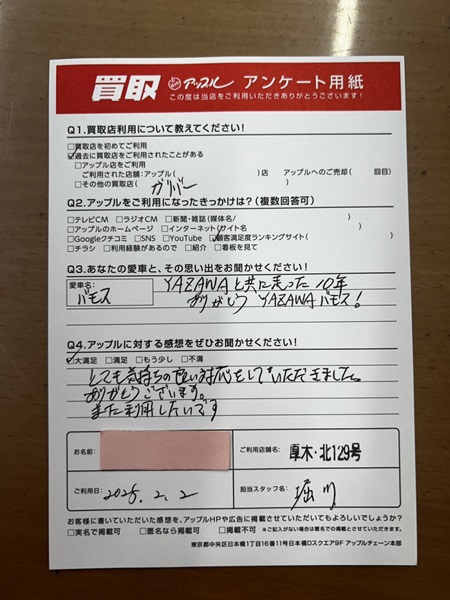 買取 アップル アンケート用紙
この度は当店をご利用いただきありがとうございます!
Q1.買取店利用について教えてください!
□買取店を初めてご利用
☑過去に買取店をご利用されたことがある
□アップル店をご利用
ご利用された店舗:アップル( )店 アップルへのご売却( 回目)
□その他の買取店( ガリバー )
Q2.アップルをご利用になったきっかけは?(複数回答可)
□テレビCM □ラジオCM □新聞・雑誌(媒体名/ )
□アップルのホームページ □インターネット(サイト名 )
□Googleクチコミ □SNS □YouTube ☑顧客満足度ランキングサイト( )
□チラシ □利用経験があるので □紹介 □看板を見て
Q3.あなたの愛車と、その思い出をお聞かせください!
愛車名: バモス
YAZAWAと共に走った10年
ありがとう YAZAWAバモス!
Q4.アップルに対する感想をぜひお聞かせください!
☑大満足 □満足 □もう少し □不満
とても気持ちの良い対応をしていただきました。
ありがとうございます。
また利用したいです
お名前:
ご利用店舗名: 厚木・北129号
ご利用日: 2026.2.2
担当スタッフ名: 堀川
お客様に書いていただいた感想を、アップルHPや広告に掲載させていただいてもよろしいでしょうか?
□実名で掲載可 □匿名なら掲載可 □掲載不可 ※ご記入がない場合は匿名での掲載とさせていただきます。
東京都中央区日本橋1丁目16番11号日本橋Dスクエア9F アップルチェーン本部